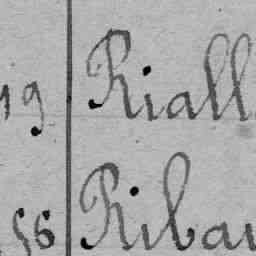 19 Riall
56 Ribau